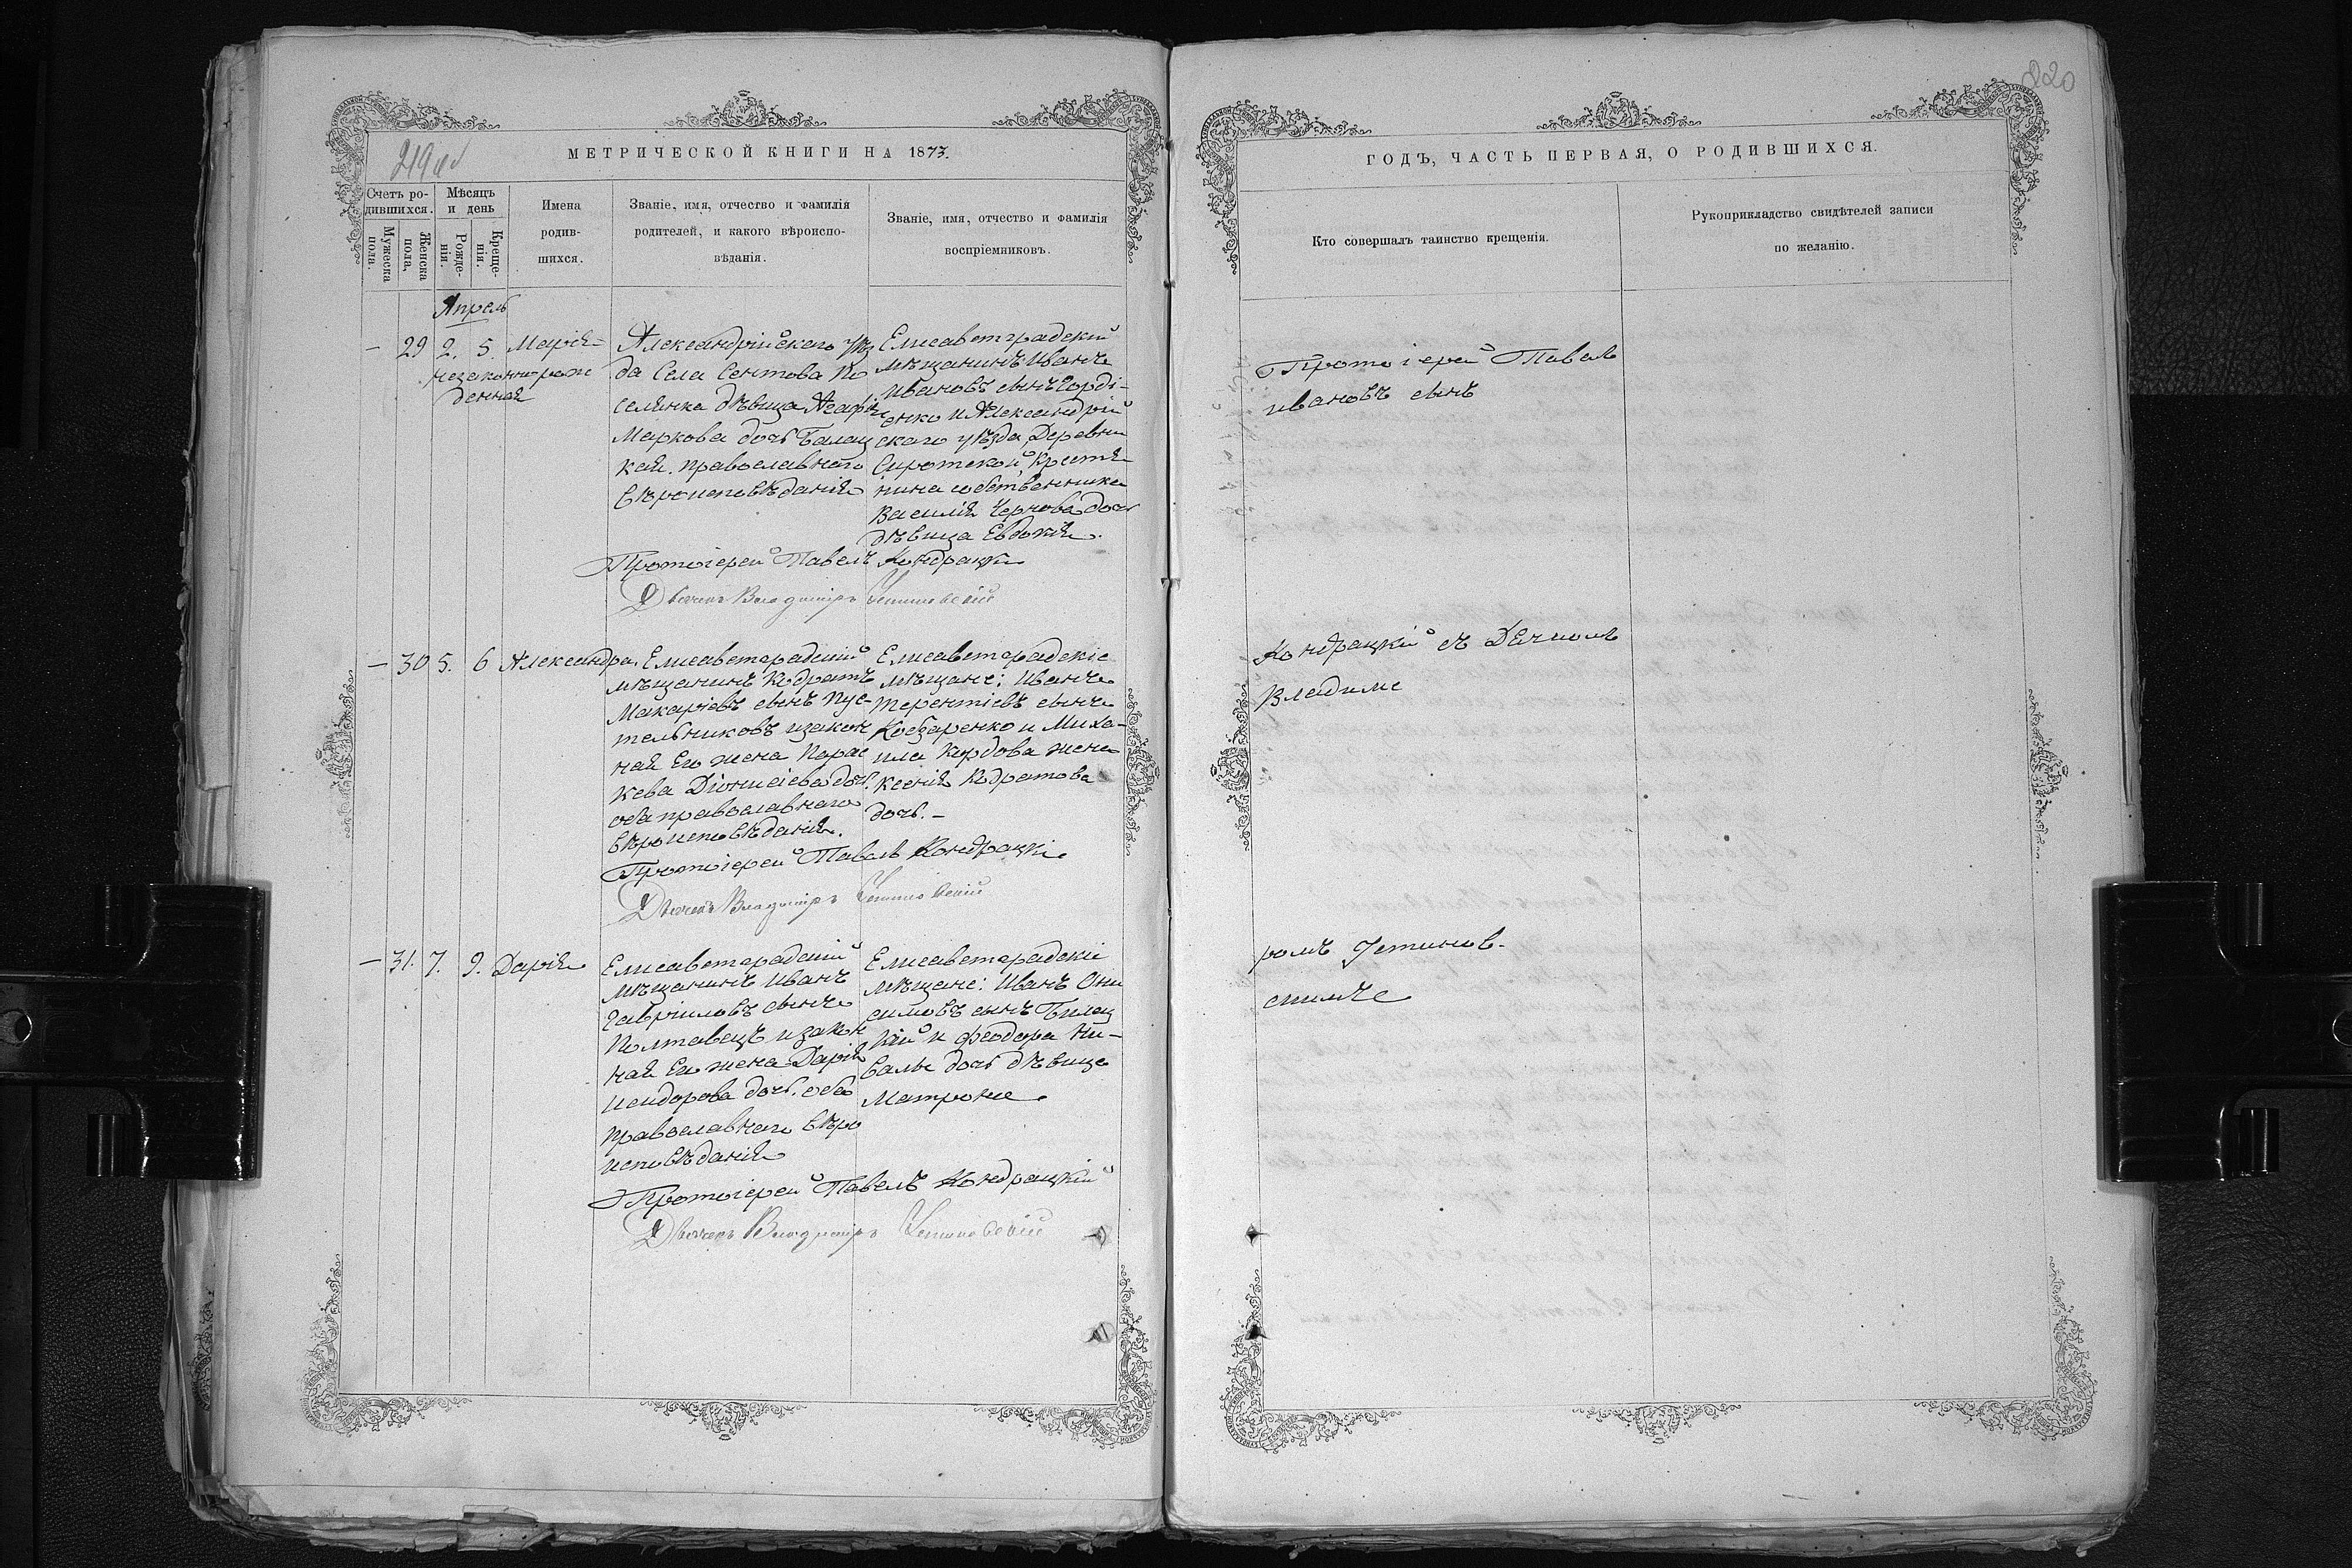 219 об
МЕТРИЧЕСКОЙ КНИГИ НА 1873.
Счетъ ро-
дившихся.
Мужеска
пола.
Женска
пола,
Мѣсяцъ
и день
Рожде-
нія.
Креще-
нія.
Имена
родив-
шихся.
Званіе, имя, отчество и фамилія
родителей, и какого вѣроиспо-
вѣданія.
Званіе, имя, отчество и фамилія
воспріемниковъ.
Апрель
— 29 2. 5. Марія
незаконнорож
денная
Александрійскаго уѣз
да Села Сентова По
селянка дѣвица Агафія
Маркова дочь Балац
кая. православнаго
вѣроисповѣданія
Елисаветградскій
мѣщанинъ Иванъ
Ивановъ сынъ Горді-
енко и Александрій
скаго уѣзда, Деревни
Сиротской, Крестья
нина собственника
Василія Чернова дочь
дѣвица Евдокія.
Протоіерей Павелъ Кондрацкій
Діаконъ Владиміръ Устиновскій
— 30 5. 6 Александра.
Елисаветградскій
мѣщанинъ Кодратъ
Макаріевъ сынъ Пус-
тельниковъ и закон
ная Его жена Парас
кева Діонисіева дочь.
оба православнаго
вѣроисповѣданія.
Елисаветградскіе
мѣщане: Иванъ
Терентіевъ сынъ
Кобзаренко и Миха-
ила Кордова жена
Ксенія Кодратова
дочь.—
Протоіерей Павелъ Кондрацкій
Діаконъ Владиміръ Устиновскій
— 31. 7. 9. Дарія
Елисаветградскій
мѣщанинъ Иванъ
Гавріиловъ сынъ
Полтавецъ и закон
ная Его жена Дарія
Исидорова дочь. оба
православнаго вѣро
исповѣданія
Елисаветградскіе
мѣщане: Иванъ Они
симовъ сынъ Билец
кій и Феодора Ки-
баль дочь дѣвица
Матрона.
Протоіерей Павелъ Кондрацкій
Діаконъ Владиміръ Устиновскій
220
ГОДЪ, ЧАСТЬ ПЕРВАЯ, О РОДИВШИХСЯ.
Кто совершалъ таинство крещенія.
Рукоприкладство свидѣтелей записи
по желанію.
Протоіерей Павелъ
Ивановъ сынъ
Кондрацкій съ Діаконом
Владими
ромъ Устинов-
скимъ